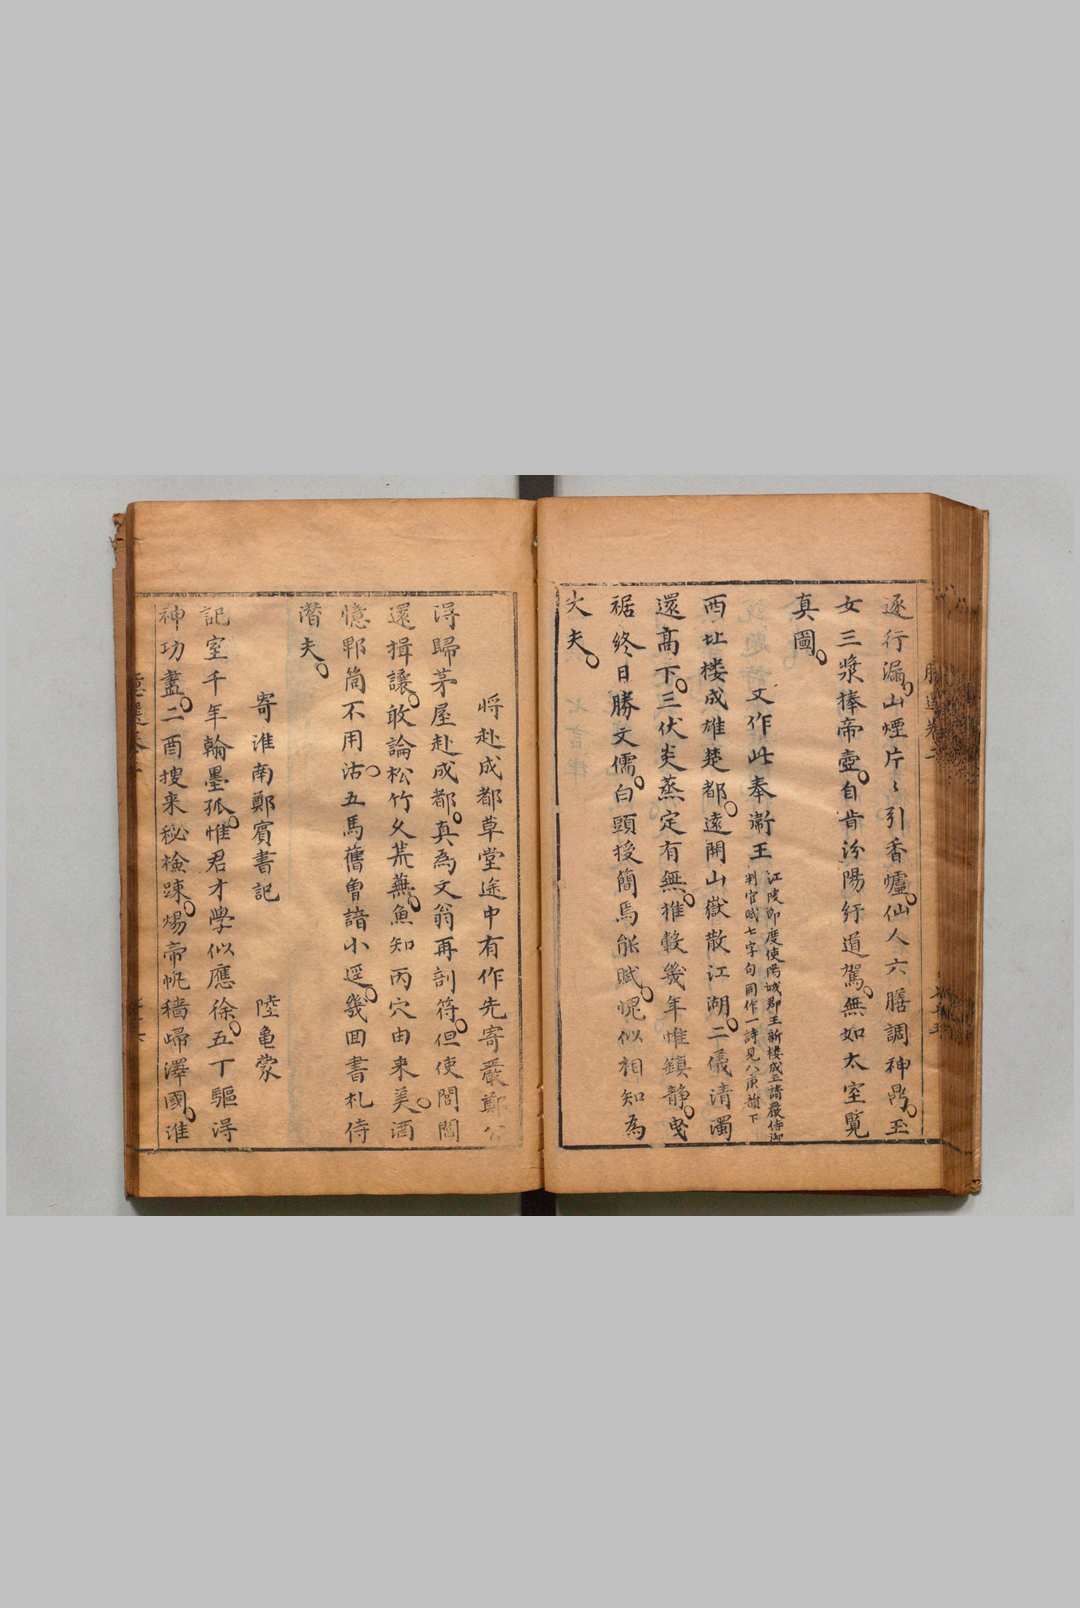 逐行漏山煙片〻引香爐仙人六膳調神鼎玉
女三漿捧帝壺自昔汾陽紆道駕無如太室覽
真圖
又作此奉衛王
江陵節度使陽城郡王新樓成王請嚴侍御
判官賦七字句同作一詩見八庚韻下
西北樓成雄楚都遠開山嶽散江湖二儀清濁
還高下三伏炎蒸定有無推轂幾年惟鎮靜曳
裾終日勝文儒白頭授簡焉能賦愧似相知為
大夫
將赴成都草堂途中有作先寄嚴鄭公
淂歸茅屋赴成都真為文翁再剖符但使閭閻
還揖讓敢論松竹久荒蕪魚知丙穴由来美酒
憶郫筒不用沽五馬舊曾諳小逕幾回書札侍
潛夫
寄淮南鄭賓書記 陸龜蒙
記室千年翰墨孤惟君才學似應徐五丁驅淂
神功盡二酉搜来秘檢踈煬帝帆檣歸澤國淮